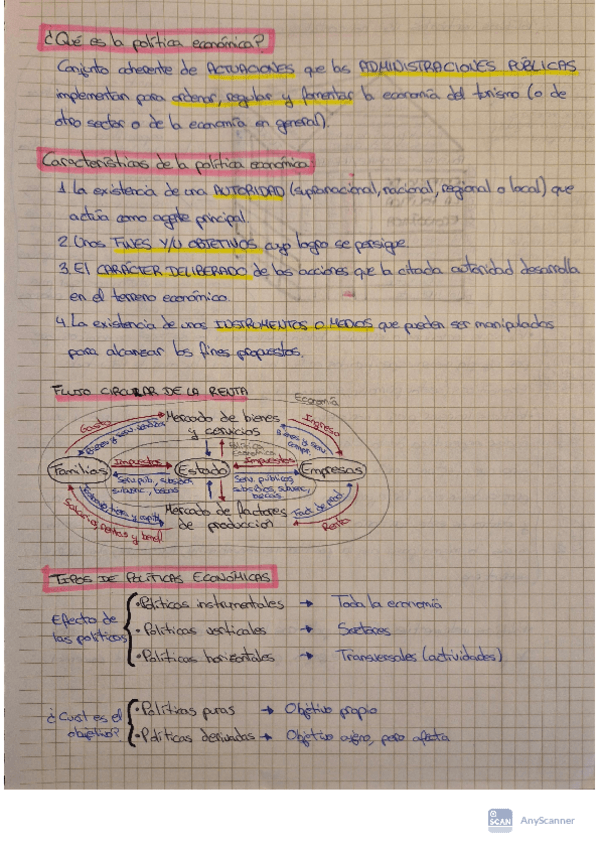 ¿Qué es la política económica?
Conjunto coherente de ACTUACIONES que las ADMINISTRACIONES PÚBLICAS
implementan para ordenar, regular y fomentar la economía del turismo (o de
otro sector o de la economía en general).
Características de la política económica
1. La existencia de una AUTORIDAD (supranacional, nacional, regional o local) que
actúa como agente principal.
2. Unos FINES Y/U OBJETIVOS cuyo logro se persigue.
3. El CARÁCTER DELIBERADO de las acciones que la citada autoridad desarrolla
en el terreno económico.
4. La existencia de unos INSTRUMENTOS O MEDIOS que pueden ser manipulados
para alcanzar los fines propuestos.
FLUJO CIRCULAR DE LA RENTA
Economía
Gasto
Mercado de bienes
y servicios
Ingreso
Bienes y serv.
Familias
Impuestos
Estado
Impuestos
Empresas
Serv. púb., subsidios,
subvenc., becas
Serv. públicos
subsidios, subvenc.,
Mercado de factores
de producción
Fact. de prod.
Salarios, rentas y benef.
Renta
TIPOS DE POLÍTICAS ECONÓMICAS
Efecto de
las políticas
• Políticas instrumentales → Toda la economía
• Políticas verticales → Sectores
• Políticas horizontales → Transversales (actividades)
¿Cuál es el
objetivo?
• Políticas puras → Objetivo propio
• Políticas derivadas → Objetivo ajeno, pero afecta
SCAN
AnyScanner